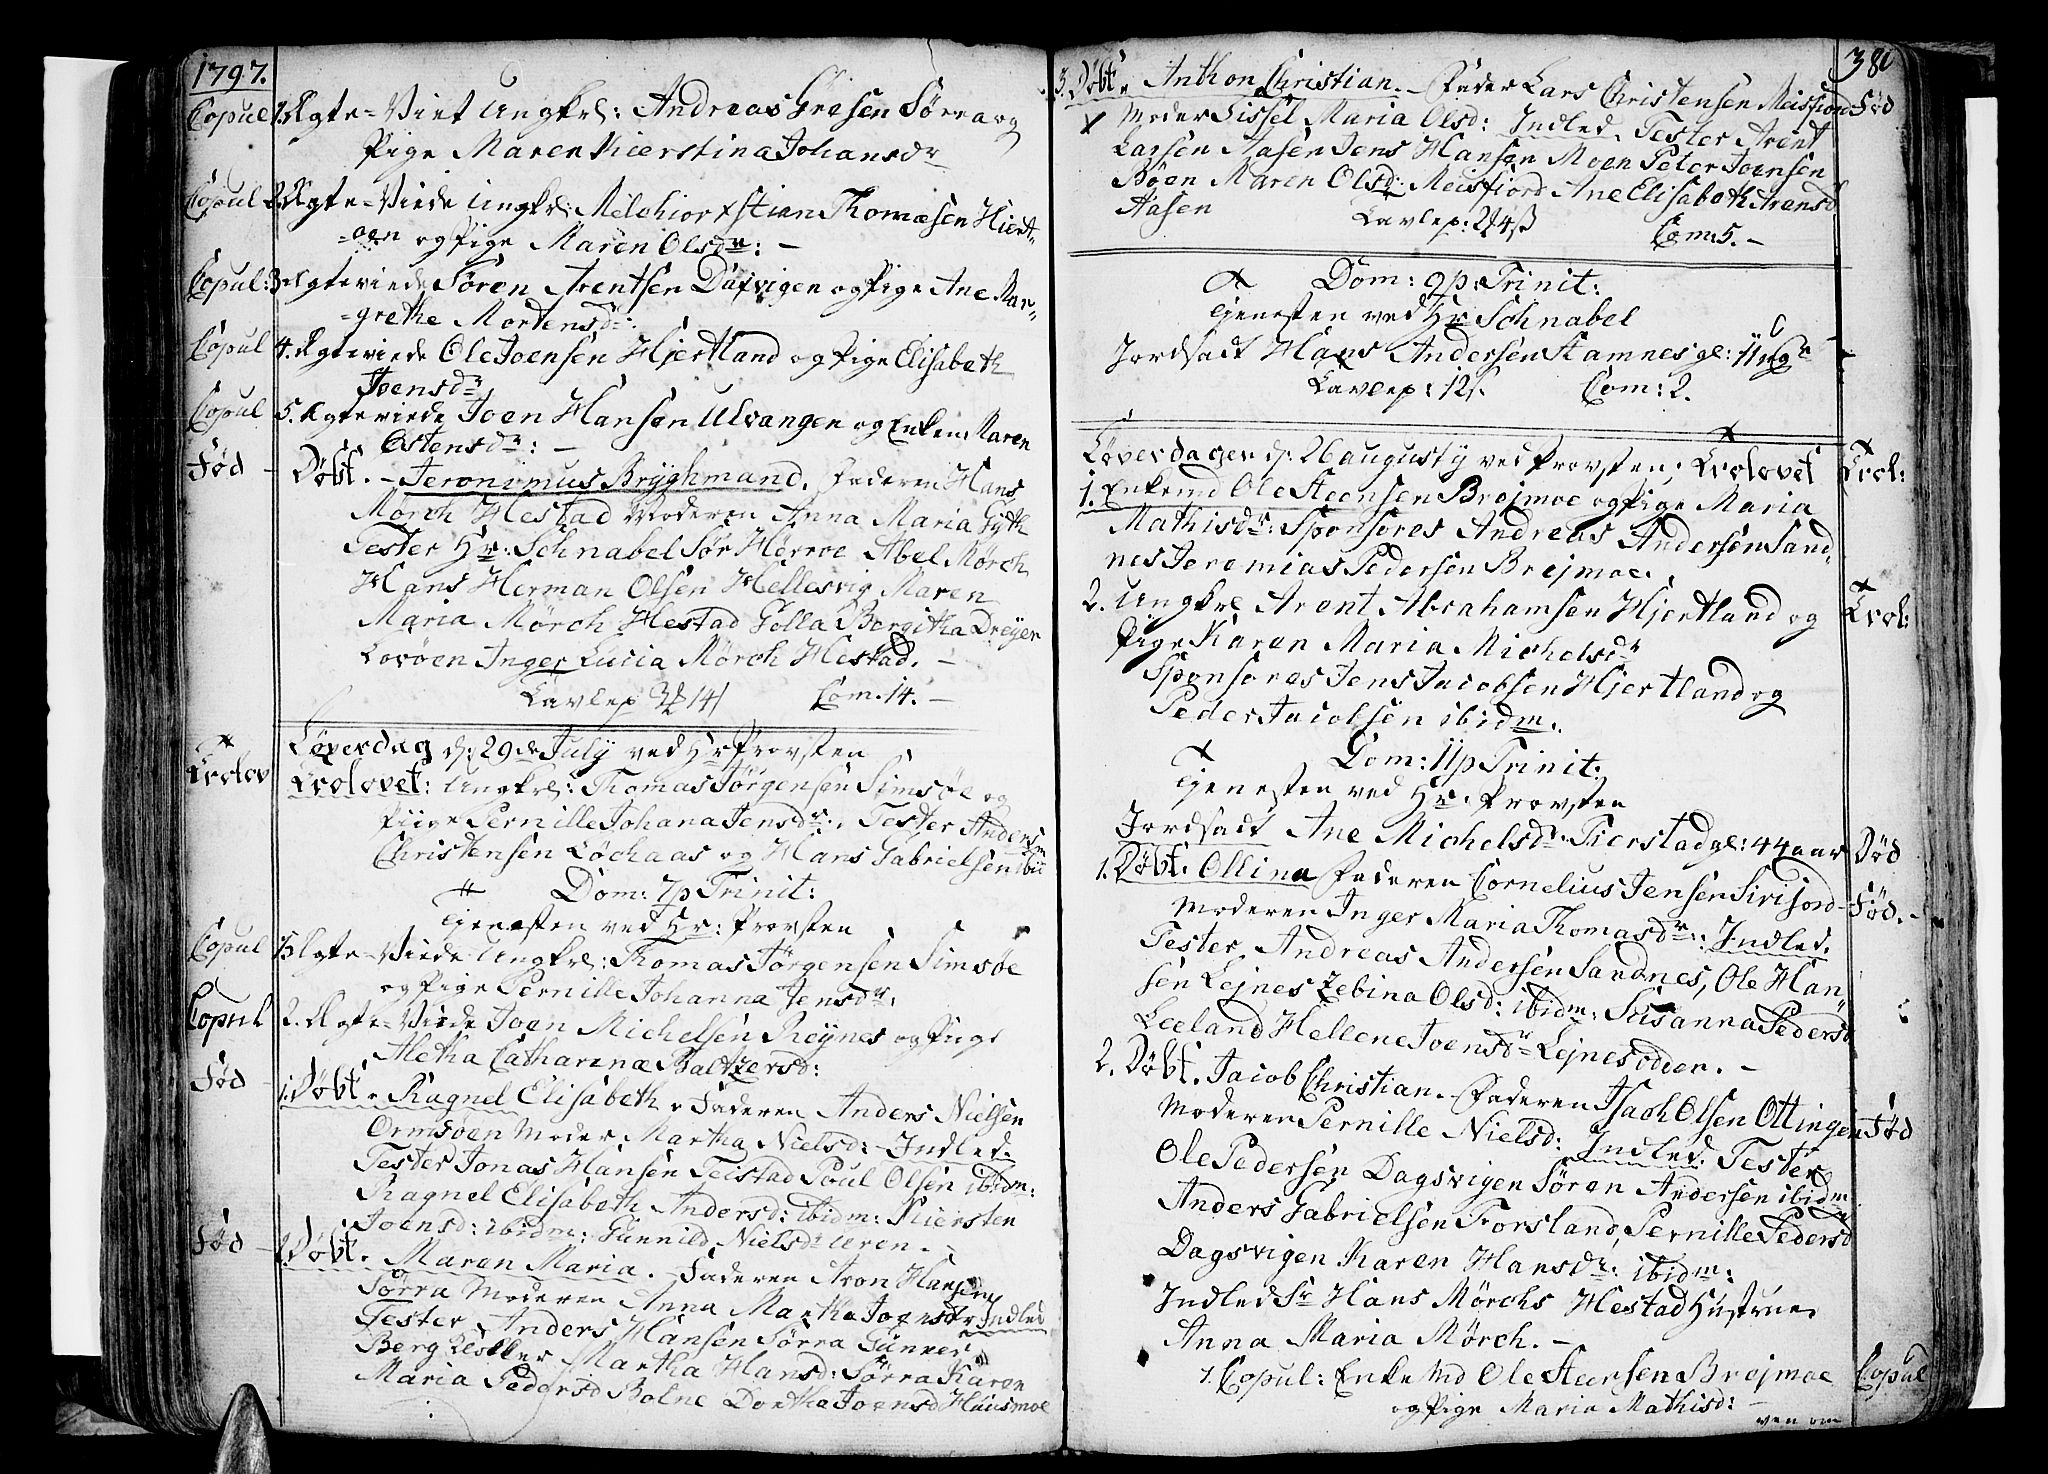 1797.
Copul 1. Ægte-Viet Ungkrl: Andreas Gresen Sørra og
Pige Maren Kierstina Johansdr
Copul 2. Ægte-Viede Ungkrl: Melchior Xstian Thomæsen Hiert-
-øen og Pige Maren Olsdr: -
Copul: 3. Ægteviede Søren Arentsen Dafvigen og Pige Ane Mar-
-grethe Mortensdr:
Copul 4. Ægteviede Ole Joensen Hjertland og Pige Elisabeth
Joensdr
Copul 5. Ægteviede Joen Hansen Ulvangen og Enken Maren
Ostensdr: -
Fød - Døbt. - Jeronimus Bryghmand. Faderen Hans
Mörch Hestad Moderen Anna Maria Gyth
Tester Hr: Schnabel Sør Herrøe Abel Mörch
Hans Herman Olsen Hellesvig Maren
Maria Mörch Hestad Golla Bergitha Dreyer
Lovöen Inger Lucia Mörch Hestad. -
Tavlep 3 14 Com. 14. -
Løverdag d: 29de July ved Hr Provsten
Trolov Trolovet: Ungkrl: Thomas Jörgensen Simsöe og
Piige Pernille Johana Jensdr: Tester Anders
Christensen Löchaas og Hans Gabrielsen ibid
Dom: 7 p Trinit:
Tjenesten ved Hr: Provsten
Copul 1. Ægte-Viede Ungkrl: Thomas Jörgensen Simsöe
og Pige Pernille Johanna Jensdr:
Copul 2. Ægte-Viede Joen Michelsen Reynes og Pige
Aletha Catharina Baltzersd:
Fød - 1. Døbt. Ragnel Elisabeth. Faderen Anders Nielsen
Ormsöen Moder Martha Nielsd: - Indled.
Tester Jonas Hansen Teistad Poul Olsen ibidm:
Ragnel Elisabeth Andersd: ibidm: Kiersten
Joensd: ibidm: Gunnild Nielsdr Uren. -
Fød - 2. Døbt. Maren Maria. - Faderen Aron Hansen
Sørra Moderen Anna Martha Joensdr Indled
Tester Anders Hansen Sørra Gunner
Berg Martha Hansd: Sørra Karen
Maria Pedersd Bolne Dorthe Joensd Huusmoe
38
3. Døbt. Anthon Christian. - Fader Lars Christensen Meisfiord Fød
Moder Sissel Maria Olsd: Indled. Tester Arent
Larsen Aasen Jens Hansen Moen Peter Joensen
Böen Maren Olsd: Meisfiord Ane Elisabeth Arensd
Aasen Tavlep: 2 4ß Com: 5. -
Dom: 9 p: Trinit:
Tjenesten ved Hr Schnabel
Jordsadt Hans Andersen Hamnes gl:
Tavlep: 12ß. Com: 2.
Løverdagen d: 26 augusty ved Provsten; Trolovet Trol:
1. Enkemd Ole Steensen Brejmoe og Pige Maria
Mathisdr: Sponsores Andreas Andersen Sand-
nes Jeremias Pedersen Brejmoe.
2. Ungkrl Arent Abrahamsen Hjertland og Trol:
Pige Karen Maria Michelsdr
Sponsores Jens Jacobsen Hjertland og
Peder Jacobsen ibidm.
Dom: 11 p Trinit:
Tjenesten ved Hr. Provsten
Jordsadt Ane Michelsdr Tierstad gl: 44 aar Død
1. Døbt. Ollina Faderen Cornelius Jensen Sirisord Fød. -
Moderen Inger Maria Thomasdr: Indled.
Tester Andreas Andersen Sandnes, Ole Han-
sen Lejnes Zebina Olsd: ibidm: Susanna Pedersd
Leeland Hellene Joensdr Lejnesodden. -
2. Døbt. Jacob Christian. - Faderen Isach Olsen Ottingen Fød
Moderen Pernille Nielsd: Indled. Tester
Ole Pedersen Dagsvigen Søren Andersen ibidm
Anders Gabrielsen Forsland, Pernille Pedersd
Dagsvigen Karen Hansdr: ibidm:
Indled Sr Hans Mörchs Hestad Hustrue
Anna Maria Mörch. -
1. Copul: Enke Md Ole Steensen Brejmoe Copul
og Pige Maria Mathisd: -
ven om